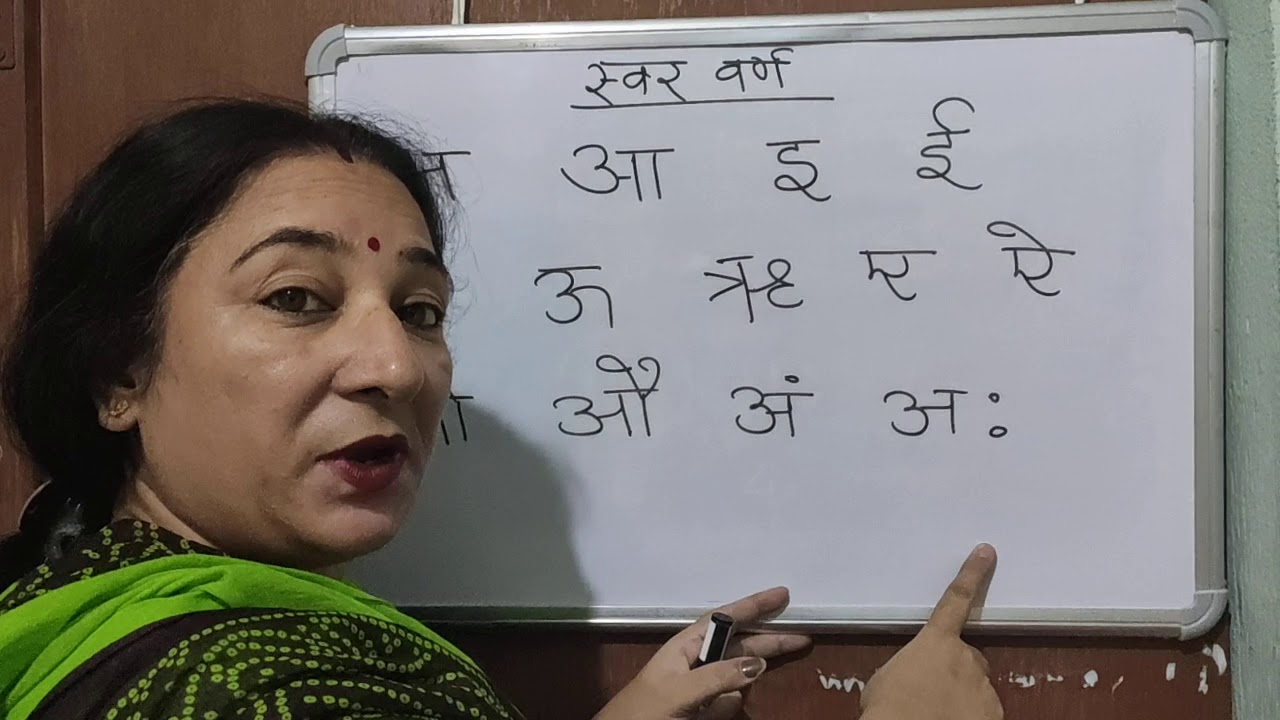 स्वर वर्ण
आ इ ई
ऊ ऋ ए ऐ
औ अं अः